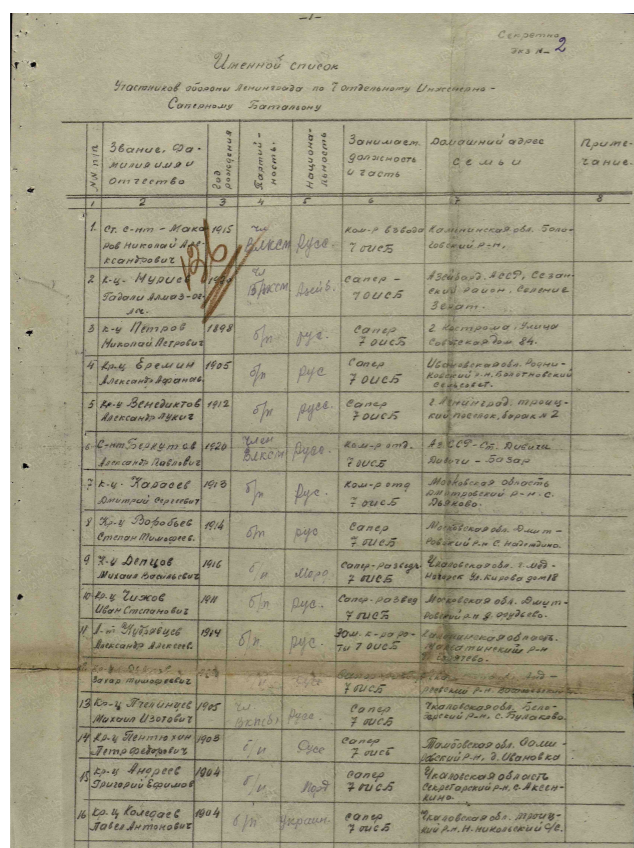 -1-
Секретно
Экз № 2
Именной список
Участников обороны Ленинграда по 7 отдельному Инженерно-
Саперному Батальону
№№ п/п
Звание, Фа-
милия имя и
отчество
Год
рождения
Партий-
ность.
Национа-
льность
Занимаем.
должность
и часть
Домашний адрес
семьи
Приме-
чание.
1 2 3 4 5 6 7 8
1. Ст. с-нт - Мака-
ров Николай Але-
ксандрович
1915 чл ВЛКСМ Русс. Ком-р взвода
7 ОИСБ
Калининская обл. Боло-
говский р-н.
126
2 К-ц - Нуриев
Гадали Алмаз-ог-
лы.
чл ВЛКСМ Азейб. Сапер -
7 ОИСБ
Азейборд. АССР,
район. Селение
3 К-ц Петров
Николай Петрович
1898 б/п рус. Сапер
7 ОИСБ
г. Кострома. Улица
Советская дом. 84.
4 Кр-ц Еремин
Александр Афанас.
1905 б/п рус Сапер
7 ОИСБ
Ивановская обл. Родни-
ковский р-н.
сельсовет.
5 Кр-ц Венедиктов
Александр Лукич
1912 б/п русс. Сапер
7 ОИСБ
г. Ленинград. Троиц-
кий поселок, барак № 2
6 С-нт Беркутов
Александр Павлович
1920 член ВЛКСМ Русс. Ком-р отд.
7 ОИСБ
Аз ССР - Ст. Дивичи
Дивичи - Базар
7 К-ц - Карасев
Дмитрий Сергеевич
1913 б/п Рус. Ком-р отд
7 ОИСБ
Московская область
Дмитровский р-н. с.
Дьяково.
8 Кр-ц Воробьев
Степан Тимофеев.
1914 б/п рус Сапер
7 ОИСБ
Московская обл. Дмит-
ровский р-н С.
9 К-ц Депцов
Михаил Васильевич
1916 б/п Морд. Сапер-развед.
7 ОИСБ
Чкаловская обл. г. Мед-
ногорск Ул. Кирова дом 18
10 Кр-ц Чижов
Иван Степанович
1911 б/п Рус. Сапер-развед
7 ОИСБ
Московская обл. Дмит-
ровский р-н д.
11 Л-т Кудрявцев
Александр Алексеев.
1914 б/п рус. Зам. к-ра ро-
ты 7 ОИСБ
Калининская область
р-н
Захар Тимофеевич
б/п Русс
7 ОИСБ
13 Кр-ц
Михаил Изотович
1905 чл. ВКП(б) Русс. Сапер
7 ОИСБ
Чкаловская обл. Бело-
зерский р-н. с. Булаково.
14 Кр-ц Пентюхин
Петр Федорович
1903 б/п Русс Сапер
7 ОИСБ
Тамбовская обл.
р-н, д. Ивановка
15 Кр-ц Андреев
Григорий Ефимов
1904 б/п Морд Сапер
7 ОИСБ
Чкаловская область
Секретарский р-н, с. Аксен-
кино.
16 Кр-ц Коледаев
Павел Антонович
1904 б/п Украин. Сапер
7 ОИСБ
Чкаловская обл. Троиц-
кий р-н. Н. Никольский С/с.